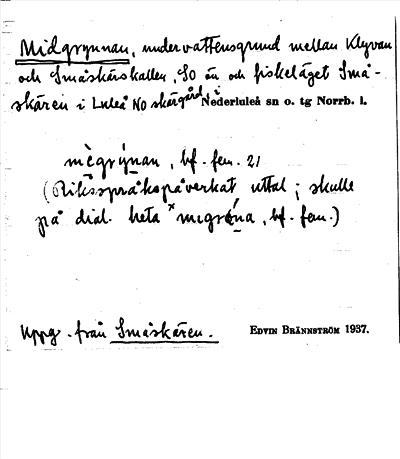 Midgrynnan, undervattensgrund mellan Klyvan
och Småskärskallen, SO än och fiskeläget Små-
skären i Luleå NO skärgård i Nederluleå sn o. tg Norrb. l.
mègrýnan, bf. fem. 21
(Riksspråkspåverkat uttal; skulle
på dial. heta *megrǿna, bf. fem.)
Uppg. från Småskären.
EDVIN BRÄNNSTRÖM 1937.